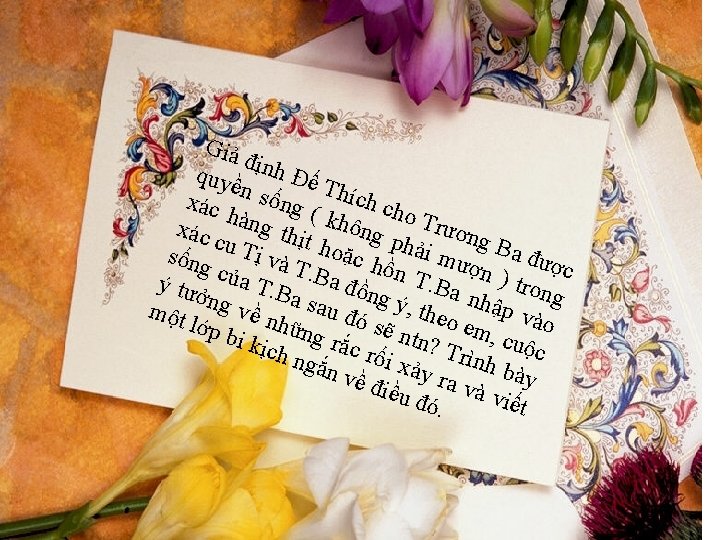 Giả định Đế Thích cho Trương Ba được
quyền sống ( không phải mượn ) trong
xác hàng thịt hoặc hồn T.Ba nhập vào
xác cu Tị và T.Ba đồng ý, theo em, cuộc
sống của T.Ba sau đó sẽ ntn? Trình bày
ý tưởng về những rắc rối xảy ra và viết
một lớp bi kịch ngắn về điều đó.